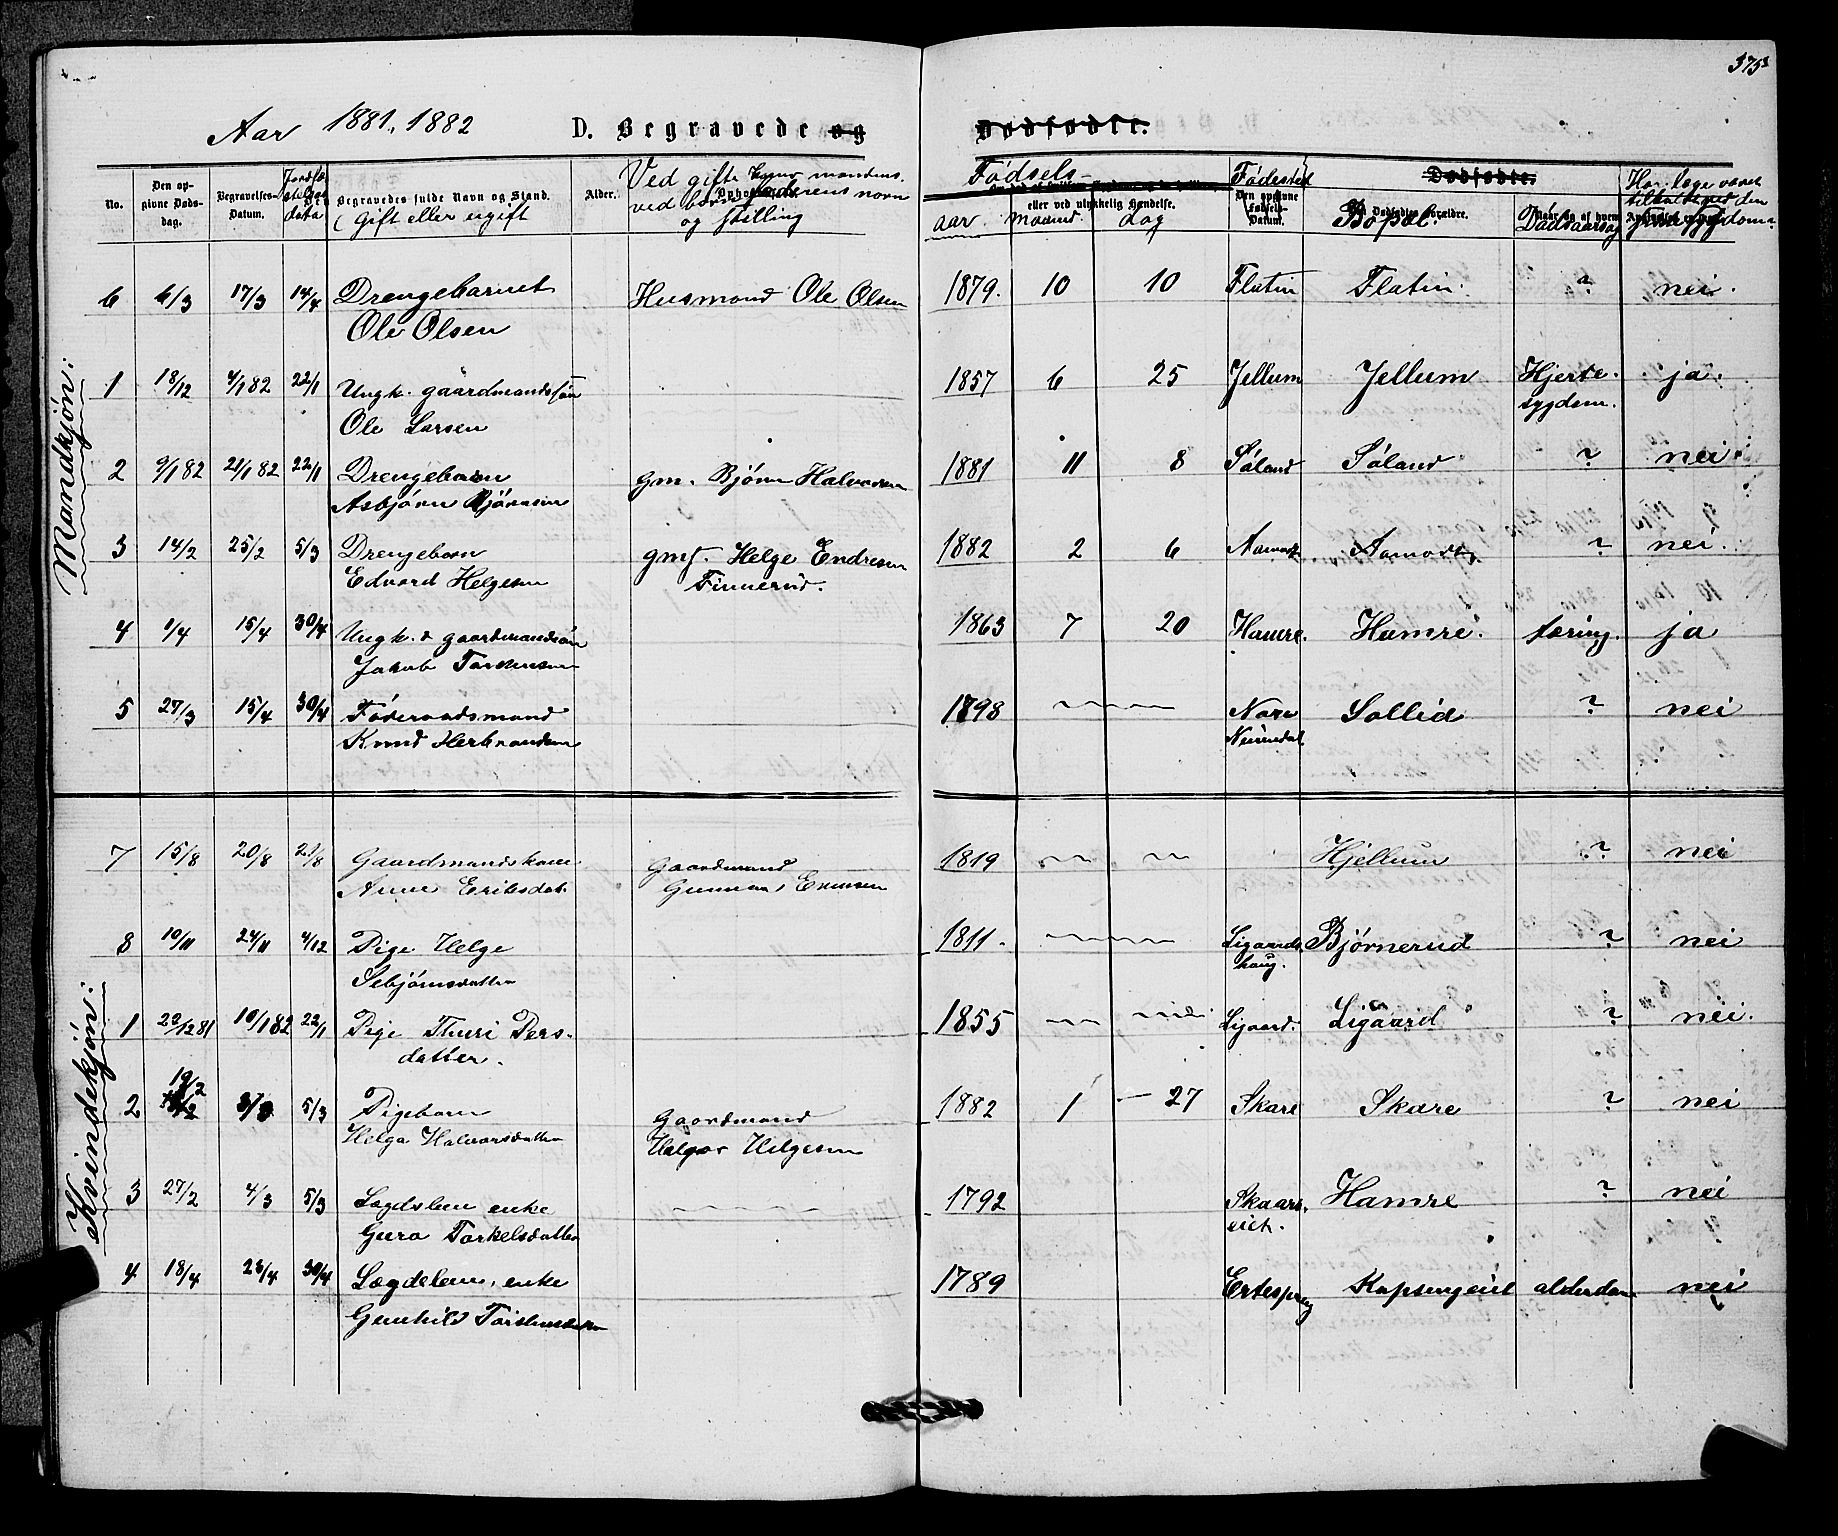 375
Aar 1881, 1882 D. Begravede og Dødfødte.
No. Den opgivne Dødsdag. Begravelses-Datum. Begravedes fulde Navn og Stand. (Gift eller ugift Alder. Ved gifte mandens, ved børn faderens navn og stilling
Fødsels- aar. maaned. dag Fødested Bopæl. Dødsaarsag Har læge været tilkaldt ved den sygdom.
eller ved ulykkelig Hændelse.
Dødfødte.
Mandkjøn:
6 6/3 17/3 14/4 Drengebarnet Husmand Ole Olsen 1879. 10 10 Flatin Flatin. ? nei.
Ole Olsen
1 18/12 4/1 82 22/1 Ungk. gaardmandssøn 1857 6 25 Jellum Jellum Hjerte- ja.
Ole Larsen sygdom.
2 9/1 82 21/1 82 22/1 Drengebarn gm. Bjørn Halvorsen 1881 11 8 Søland Søland ? nei
Asbjørn Bjørnsen
3 14/2 25/2 5/3 Drengebarn gmf. Helge Endresen 1882 2 6 Aamodt Aamodt ? nei.
Edvard Helgesen Finnerud.
4 1/4 15/4 30/4 Ungk. & gaardmandssøn 1863 7 20 Hamre. Hamre. tæring. ja
Jakob Torstensen
5 27/3 15/4 30/4 Føderaadsmand 1798 Nore Sollid ? nei
Knud Herbrandsen Numedal
Kvindekjøn:
7 15/8 20/8 21/8 Gaardmandskone Gaardmand 1819 Hjellum ? nei
Anne Eriksdat. Gunnar Evensen
8 10/11 24/11 4/12 Pige Helge 1811. Ligaards Bjørnerud ? nei
Sebjørnsdatter haug.
1 22/12 81 10/1 82 22/1 Pige Thuri Pers- 1855 Ligaard. Ligaard ? nei.
datter.
2 19/2 3/3 5/3 Pigebarn Gaardmand 1882 1 27 Skare Skare ? nei
Helga Halvorsdatter Halvor Helgesen
3 27/2 4/3 5/3 Lægdslem enke 1792 Skaars- Hamre ? nei
Guro Torkelsdatter eiet.
4 18/4 23/4 30/4 Lægdslem, enke 1789 Ertespreng Kapsengeiet alderdom nei
Gunhild Torstensdatter